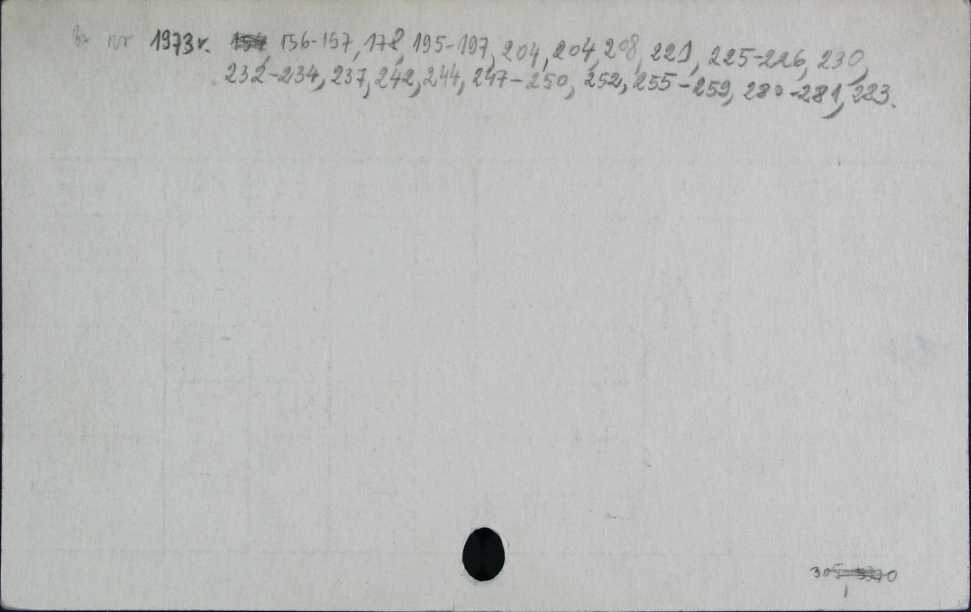 Br nr 1973r. 156-157, 178, 195-197, 204, 204, 208, 221, 225-226, 230,
232-234, 237, 242, 244, 247-250, 252, 255-259, 280-281, 283.